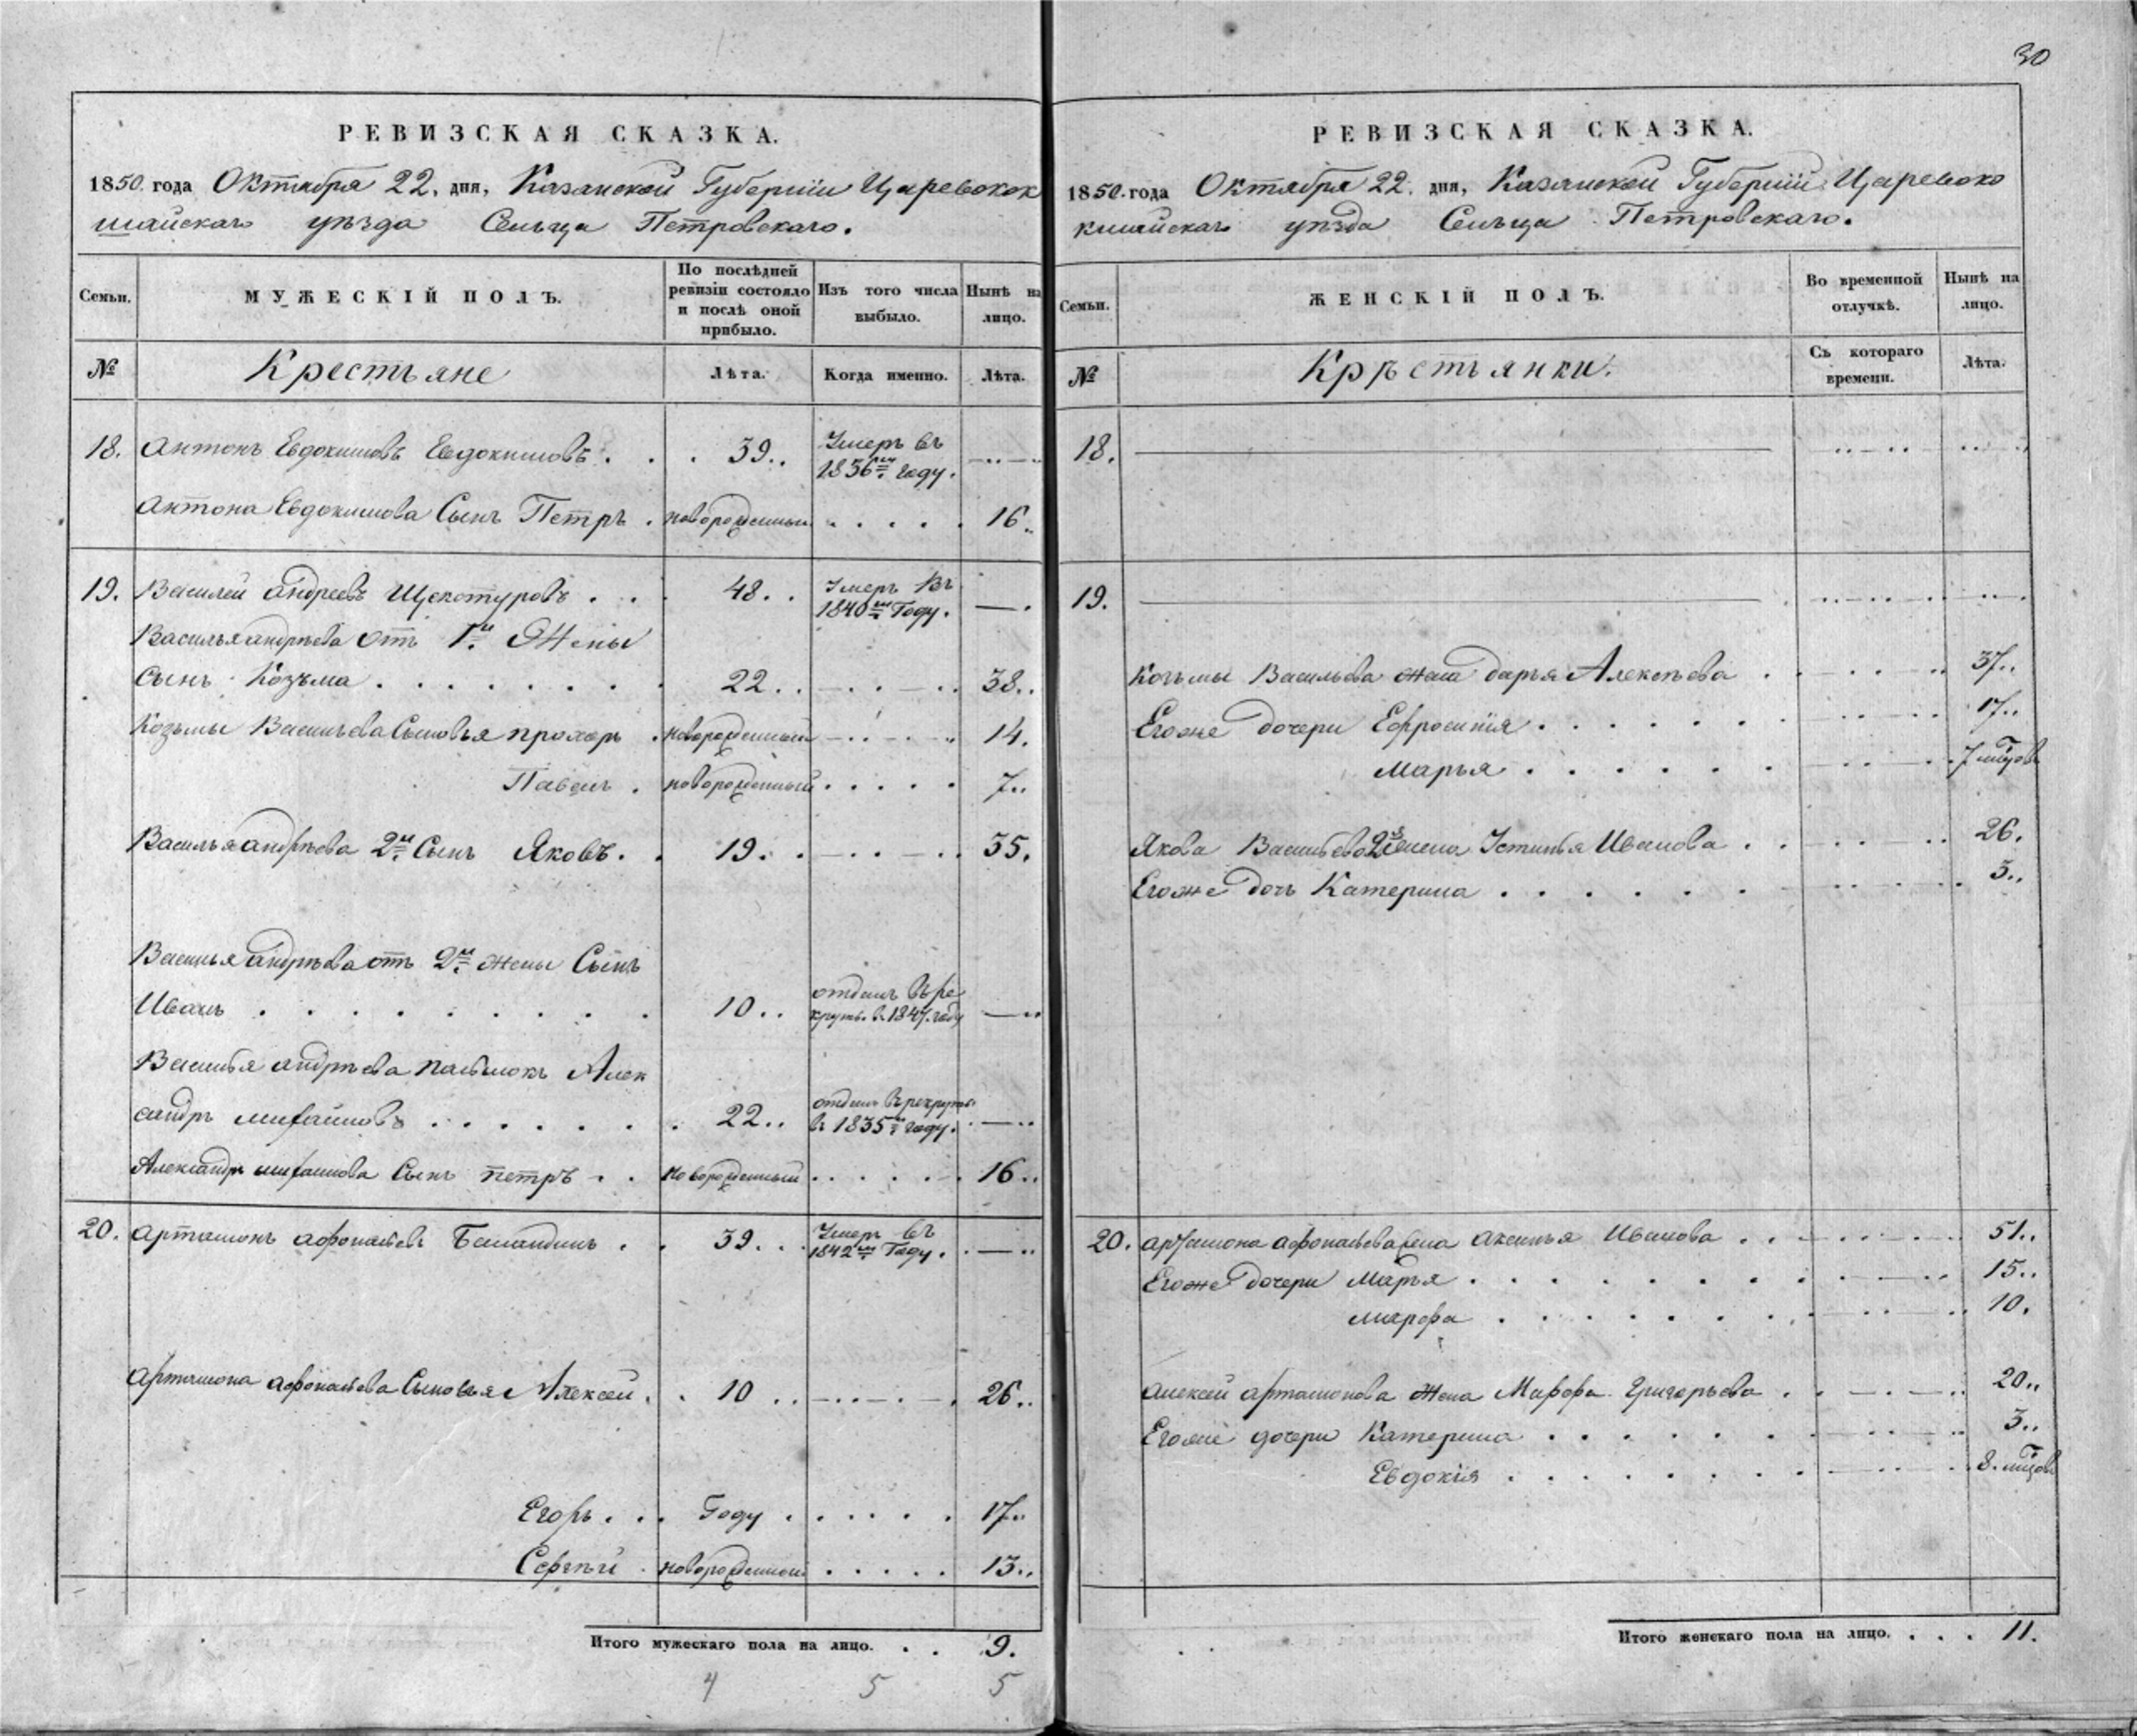 РЕВИЗСКАЯ СКАЗКА.
1850. года Октября 22. дня, Казанской Губернiи Царевокок
шайскаго уѣзда Сельца Петровскаго.
Семьи.
МУЖЕСКIЙ ПОЛЪ.
По послѣдней ревизiи состояло и послѣ оной прибыло.
Изъ того числа выбыло.
Нынѣ на лицо.
№
Крестьяне
Лѣта.
Когда именно.
Лѣта.
18. Антонъ Евдокимовъ Евдокимовъ . . . 39.. Умеръ въ 1836мъ году.
Антона Евдокимова Сынъ Петръ . новорожденный . . . . . 16..
19. Василей Андреевъ Щекотуровъ . . . 48.. Умеръ въ 1840мъ Году.
Василья андрѣева отъ 1й Жены
сынъ Козьма . . . . . . . 22.. 38..
Козьмы Васильева Сыновья прохоръ . новорожденный 14.
Павелъ . новорожденный . . . . . 7..
Василья андрѣева 2й Сынъ Яковъ. . 19. . 35.
Василья андрѣева отъ 2й жены Сынъ
Иванъ . . . . . . . . 10.. отданъ въ ре
круты в 1847. году
Василья андрѣева пасынокъ Алек
сандръ михайловъ . . . . . . . 22.. отданъ въ рекруты в 1835м году.
Александръ михайлова Сынъ петръ . . новорожденный . . . . . 16..
20. артамонъ афонасьевъ Баландинъ . . 39. . Умеръ въ 1842мъ Году.
Артамона афонасьева Сыновья Алексей . . 10 . . 26..
Егоръ . . . Году . . . . . 17..
Сергѣй . новорожденной . . . . . 13..
Итого мужескаго пола на лицо. . . 9.
4 5 5
30
РЕВИЗСКАЯ СКАЗКА.
1850. года Октября 22. дня, Казанской Губернiи Царевоко
кшайскаго уѣзда Сельца Петровскаго.
Семьи.
ЖЕНСКIЙ ПОЛЪ.
Во временной отлучкѣ.
Нынѣ на лицо.
№
Крѣстьянки.
Съ котораго времени.
Лѣта.
18.
19.
Козьмы Васильева жена дарья Алексѣева . 37..
Егоже дочери Ефросинiя . . . . . . 17..
Марья . . . . . . 7 мцовъ
Якова Васильева 2я жена Устинья Иванова . . 26.
Егоже дочь Катерина . . . . . . 3..
20. артамона афонасьева жена аксинья Иванова . . 51..
Егоже дочери Марья . . . . . . . . 15..
марфа . . . . . . . 10.
алексей артамонова жена Марфа Григорьева . . 20..
Егоже дочери Катерина . . . . . . 3..
Евдокiя . . . . . . . 8. мцовъ
Итого женскаго пола на лицо. . . . 11.